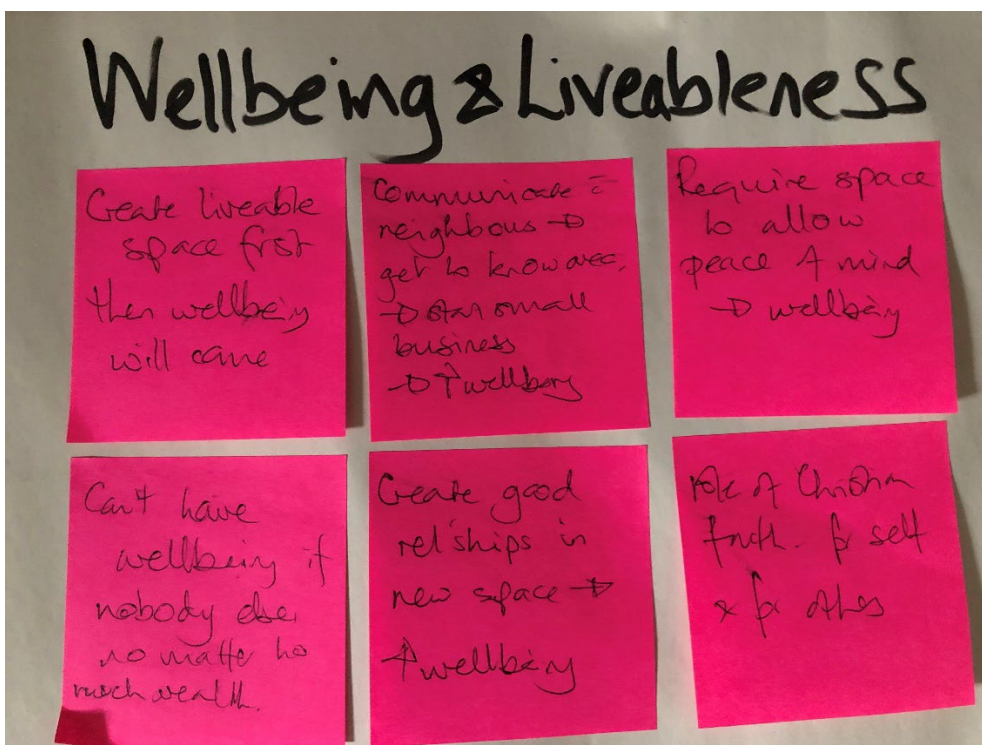 Wellbeing & Liveableness
Create liveable
space first
then wellbeing
will come
Communicate c̄
neighbous →
get to know area.
→ start small
business
→ ↑ wellbeing
Require space
to allow
peace of mind
→ wellbeing
Can't have
wellbeing if
nobody else
no matter ho
much wealth.
Create good
rel'ships in
new space →
↑ wellbeing
role of Christian
faith. for self
& for others